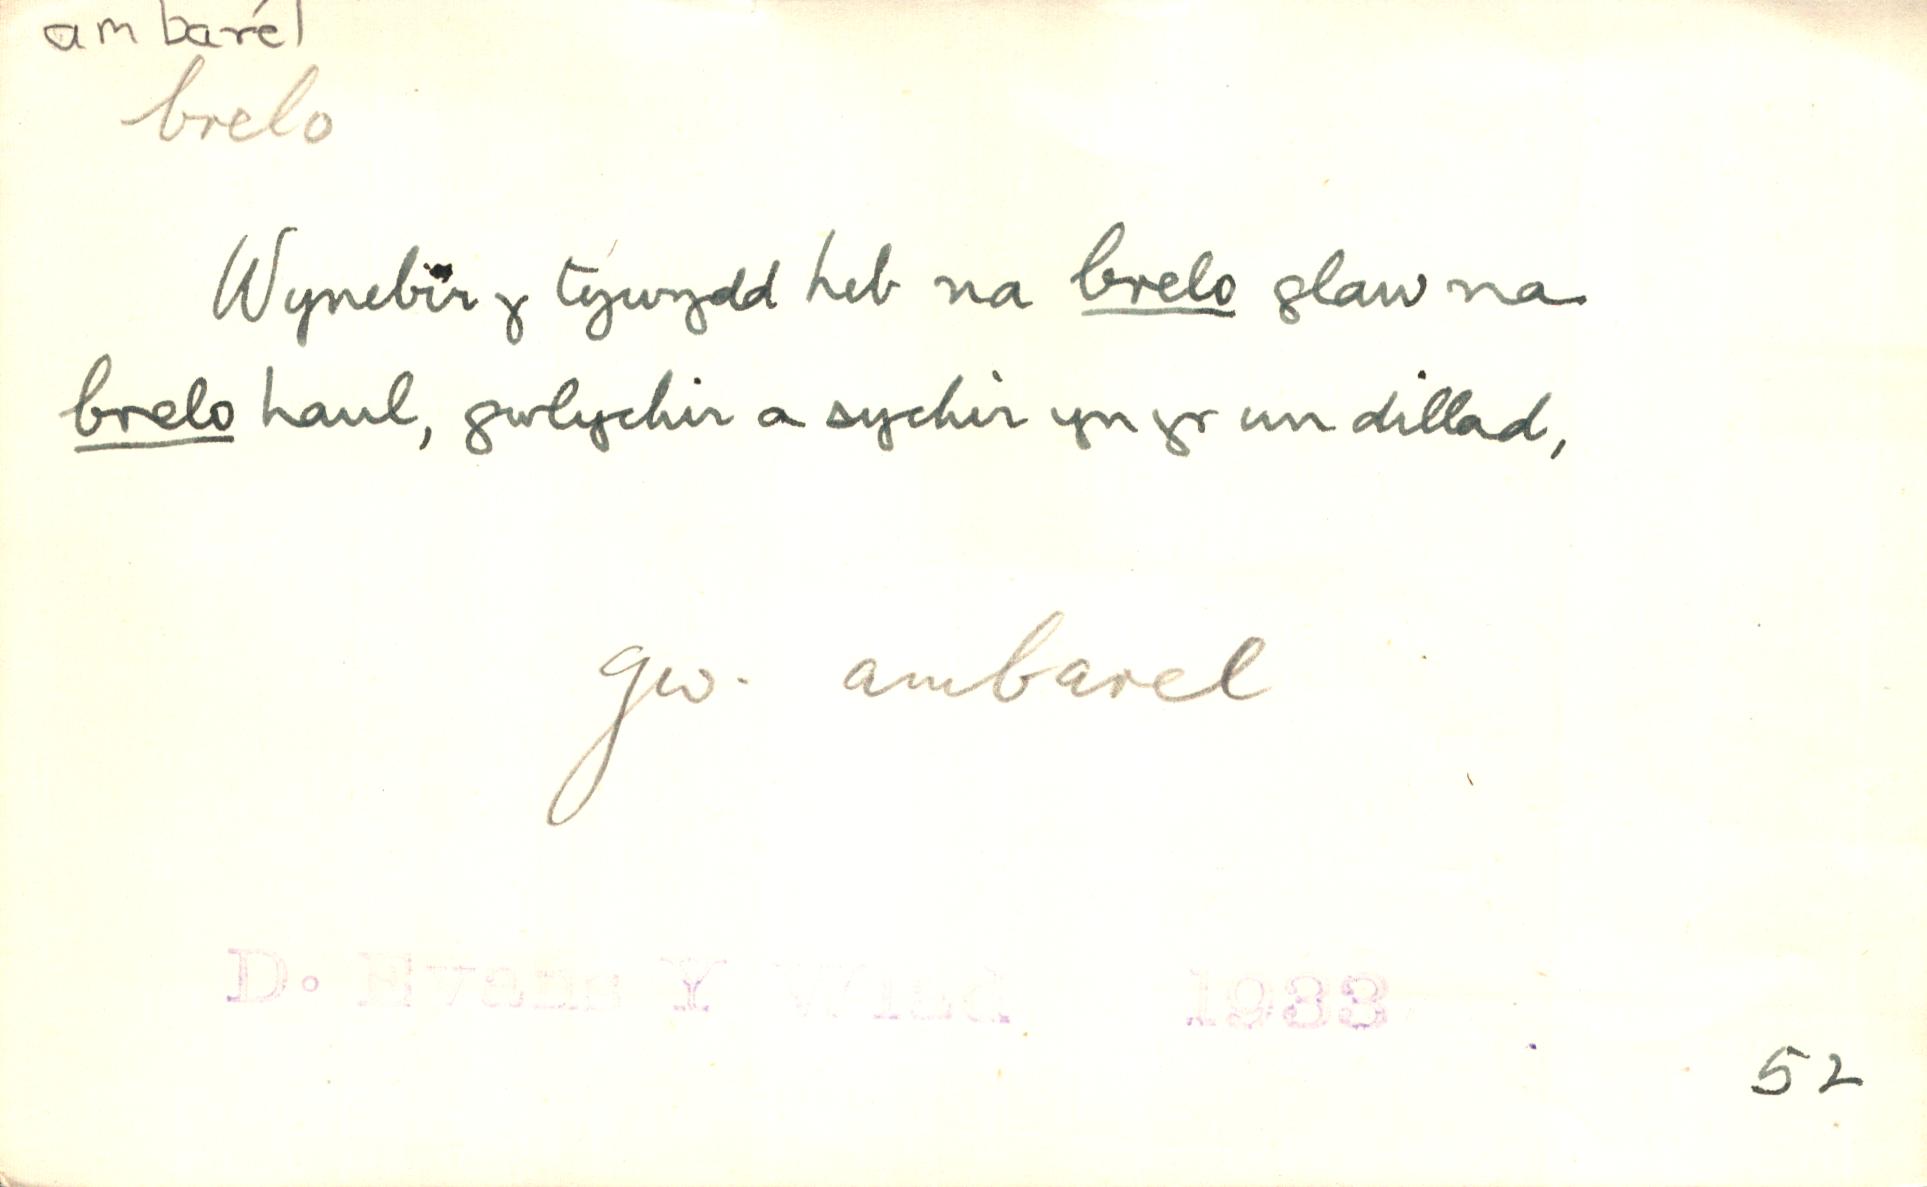 ambarél
brelo
Wynebir y tywydd heb na brelo glaw na
brelo haul, gwlychir a sychir yn yr un dillad,
gw. ambarel
D. Evans Y Wlad 1933
52